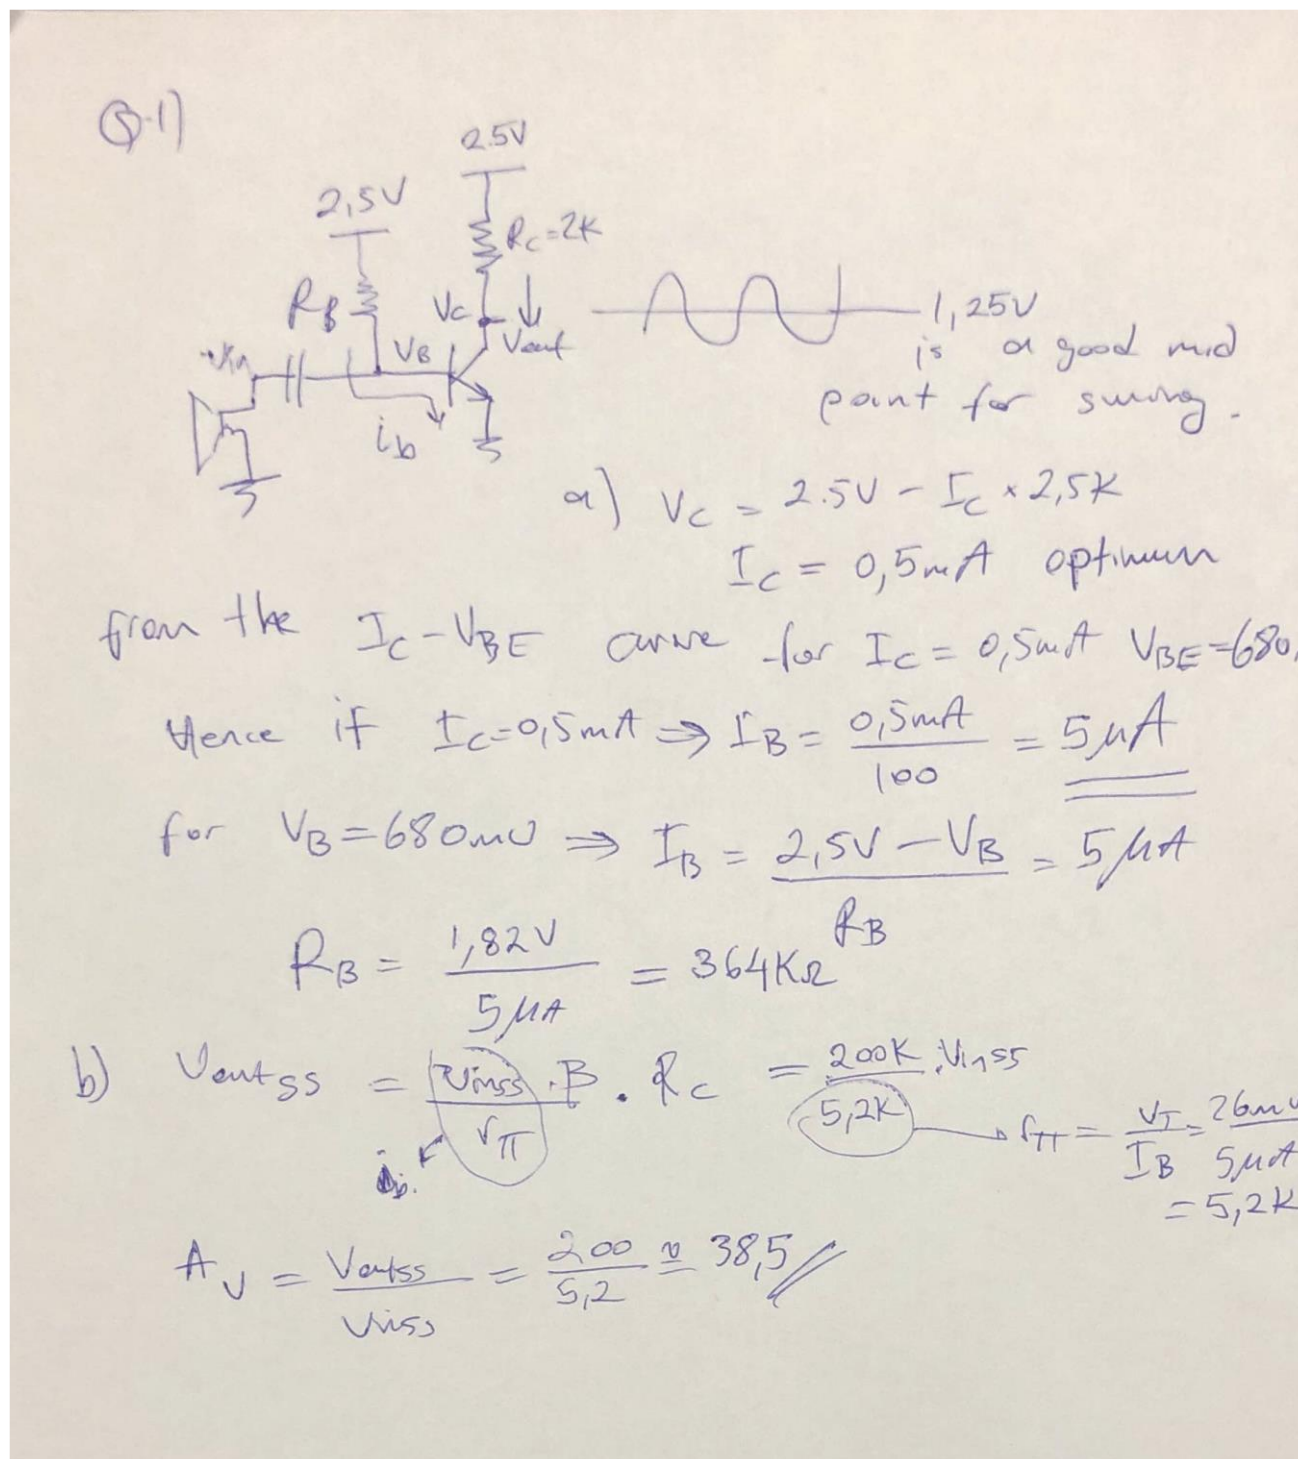 Q.1)
2.5V
2,5V
RC=2K
RB
VC
Vout
1,25V
is a good mid
point for swing.
Vin
VB
ib
a) VC = 2.5V - IC × 2,5K
IC = 0,5mA optimum
from the IC-VBE curve for IC = 0,5mA VBE=680
Hence if IC=0,5mA ⇒ IB = 0,5mA / 100 = 5μA
for VB=680mV ⇒ IB = 2,5V - VB / RB = 5μA
RB = 1,82V / 5μA = 364KΩ
b) Voutss = Vinss / rπ . B . RC = 200K / 5,2K . Vinss
ib
rπ = VT / IB = 26mV / 5μA
= 5,2K
AV = Voutss / Vinss = 200 / 5,2 ≅ 38,5